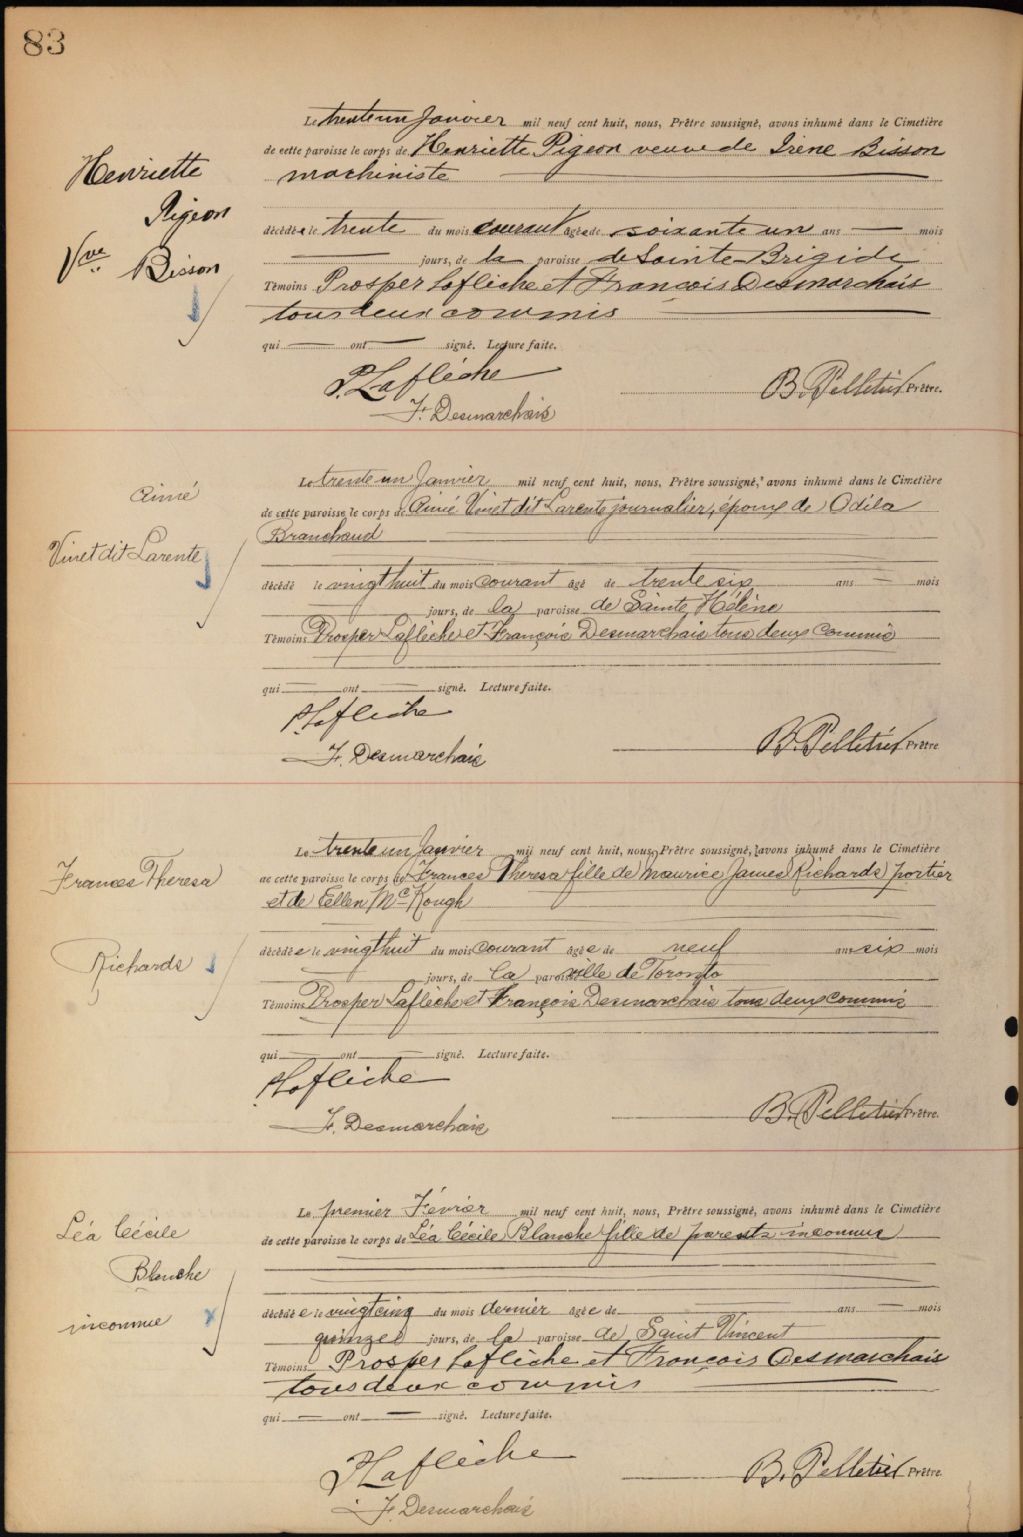 83
Henriette
Pigeon
Vve Bisson
Le trente un Janvier mil neuf cent huit, nous, Prêtre soussigné, avons inhumé dans le Cimetière
de cette paroisse le corps de Henriette Pigeon veuve de Irène Bisson
machiniste
décédée le trente du mois courant âgée de soixante un ans — mois
— jours, de la paroisse de Sainte-Brigide
Témoins Prosper Laflèche et François Desmarchais
tous deux commis
qui — ont — signé. Lecture faite.
P. Laflèche
F. Desmarchais
B. Pelletier Prêtre.
Aimé
Vinet dit Larente
Le trente un Janvier mil neuf cent huit, nous, Prêtre soussigné, avons inhumé dans le Cimetière
de cette paroisse le corps de Aimé Vinet dit Larente journalier, époux de Odila
Branchaud
décédé le vingthuit du mois courant âgé de trente six ans — mois
jours, de la paroisse de Sainte Hélène
Témoins Prosper Laflèche et François Desmarchais tous deux commis
qui — ont — signé. Lecture faite.
P. Laflèche
F. Desmarchais
B. Pelletier Prêtre
Frances Theresa
Richards
Le trente un Janvier mil neuf cent huit, nous, Prêtre soussigné, avons inhumé dans le Cimetière
de cette paroisse le corps de Frances Theresa fille de Maurice James Richards portier
et de Ellen McKough
décédée le vingthuit du mois courant âgée de neuf ans six mois
jours, de la paroisse ville de Toronto
Témoins Prosper Laflèche et François Desmarchais tous deux commis
qui — ont — signé. Lecture faite.
P. Laflèche
F. Desmarchais
B. Pelletier Prêtre.
Léa Cécile
Blanche
inconnue
Le premier Février mil neuf cent huit, nous, Prêtre soussigné, avons inhumé dans le Cimetière
de cette paroisse le corps de Léa Cécile Blanche fille de parents inconnus
décédée le vingtcinq du mois dernier âgée de ans — mois
quinze jours, de la paroisse de Saint Vincent
Témoins Prosper Laflèche et François Desmarchais
tous deux commis
qui — ont — signé. Lecture faite.
P. Laflèche
F. Desmarchais
B. Pelletier Prêtre